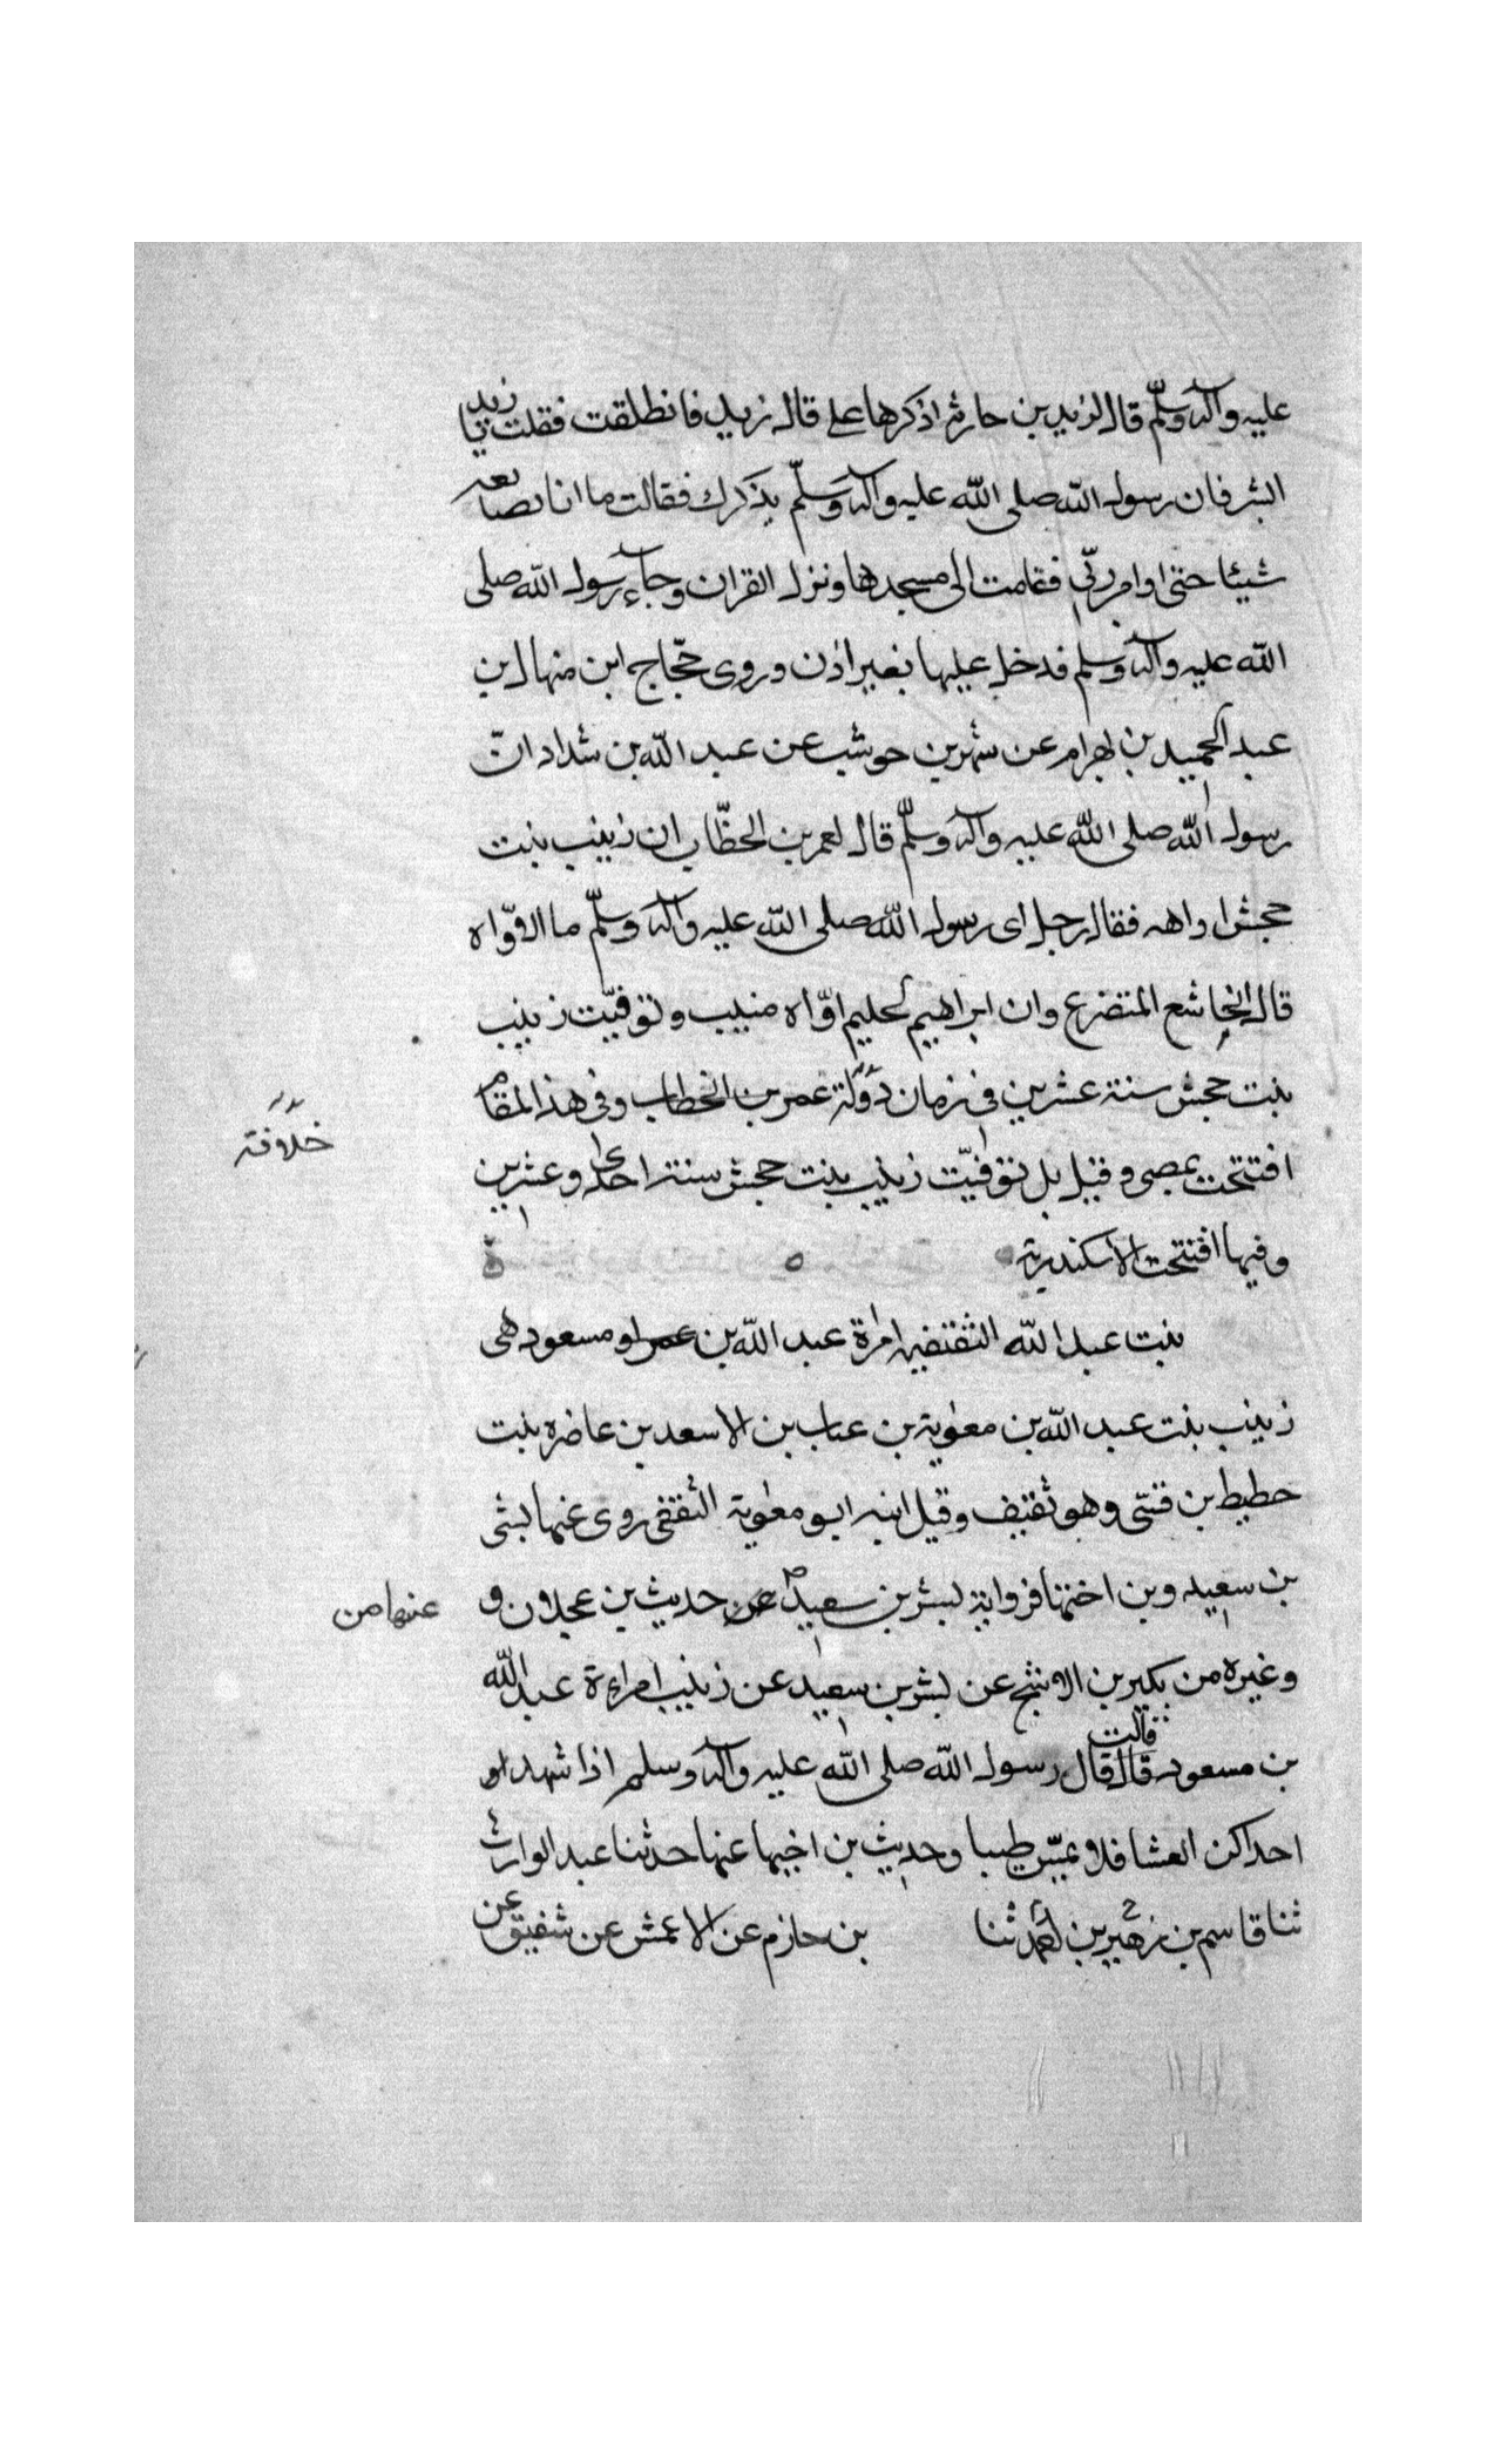 عليه وآله وسلّم قال لزيد بن حارثه اذكرها على قال زيد فانطلقت فقلت يا زينب
ابشر فان رسول الله صلى الله عليه وآله وسلّم يذكرك فقالت ما انا بصانعه
شيئا حتى اوامر ربّى فقامت الى مسجدها ونزل القران وجاء رسول الله صلى
الله عليه وآله وسلم فدخل عليها بغير اذن وروى حجّاج ابن منهال بن
عبد الحميد بن بهرام عن شهر بن حوشب عن عبد الله بن شداد انّ
رسول الله صلى الله عليه وآله وسلّم قال لعمر بن الخطّاب ان زينب بنت
حجش اواهه فقال رجل اى رسول الله صلى الله عليه وآله وسلّم ما الاوّاه
قال الخاشع المتضرع وان ابراهيم لحليم اوّاه منيب وتوفيّت زينب
بنت حجش سنة عشرين فى زمان دولة عمر بن الخطاب وفى هذا المقام
خلافة
افتتحت مصر وقيل بل توفيّت زينب بنت حجش سنة احدى وعشرين
وفيها افتتحت الاسكندرية
بنت عبد الله الثقفيه امراة عبد الله بن مسعود هى
زينب بنت عبد الله بن معوية بن عتاب بن الاسعد بن عاضره بنت
حطيط بن قسّى وهو ثقيف وقيل ابنه ابو معوية الثقفى روى عنها بشر
بن سعيد وبن اختها فرواية بشر بن سعيد عن حديث بن عجلان و
عنها من
وغيره من بكير بن الاشج عن بشر بن سعيد عن زينب امراءة عبد الله
بن مسعود قال قالت قال رسول الله صلى الله عليه وآله وسلم اذا شهد
احداكن العشا فلا تمسّ طيبا وحديث بن اخيها عنها حدثنا عبد الوارث
ثنا قاسم بن زهير بن ثنا بن حازم عن الاعمش عن شقيق عن